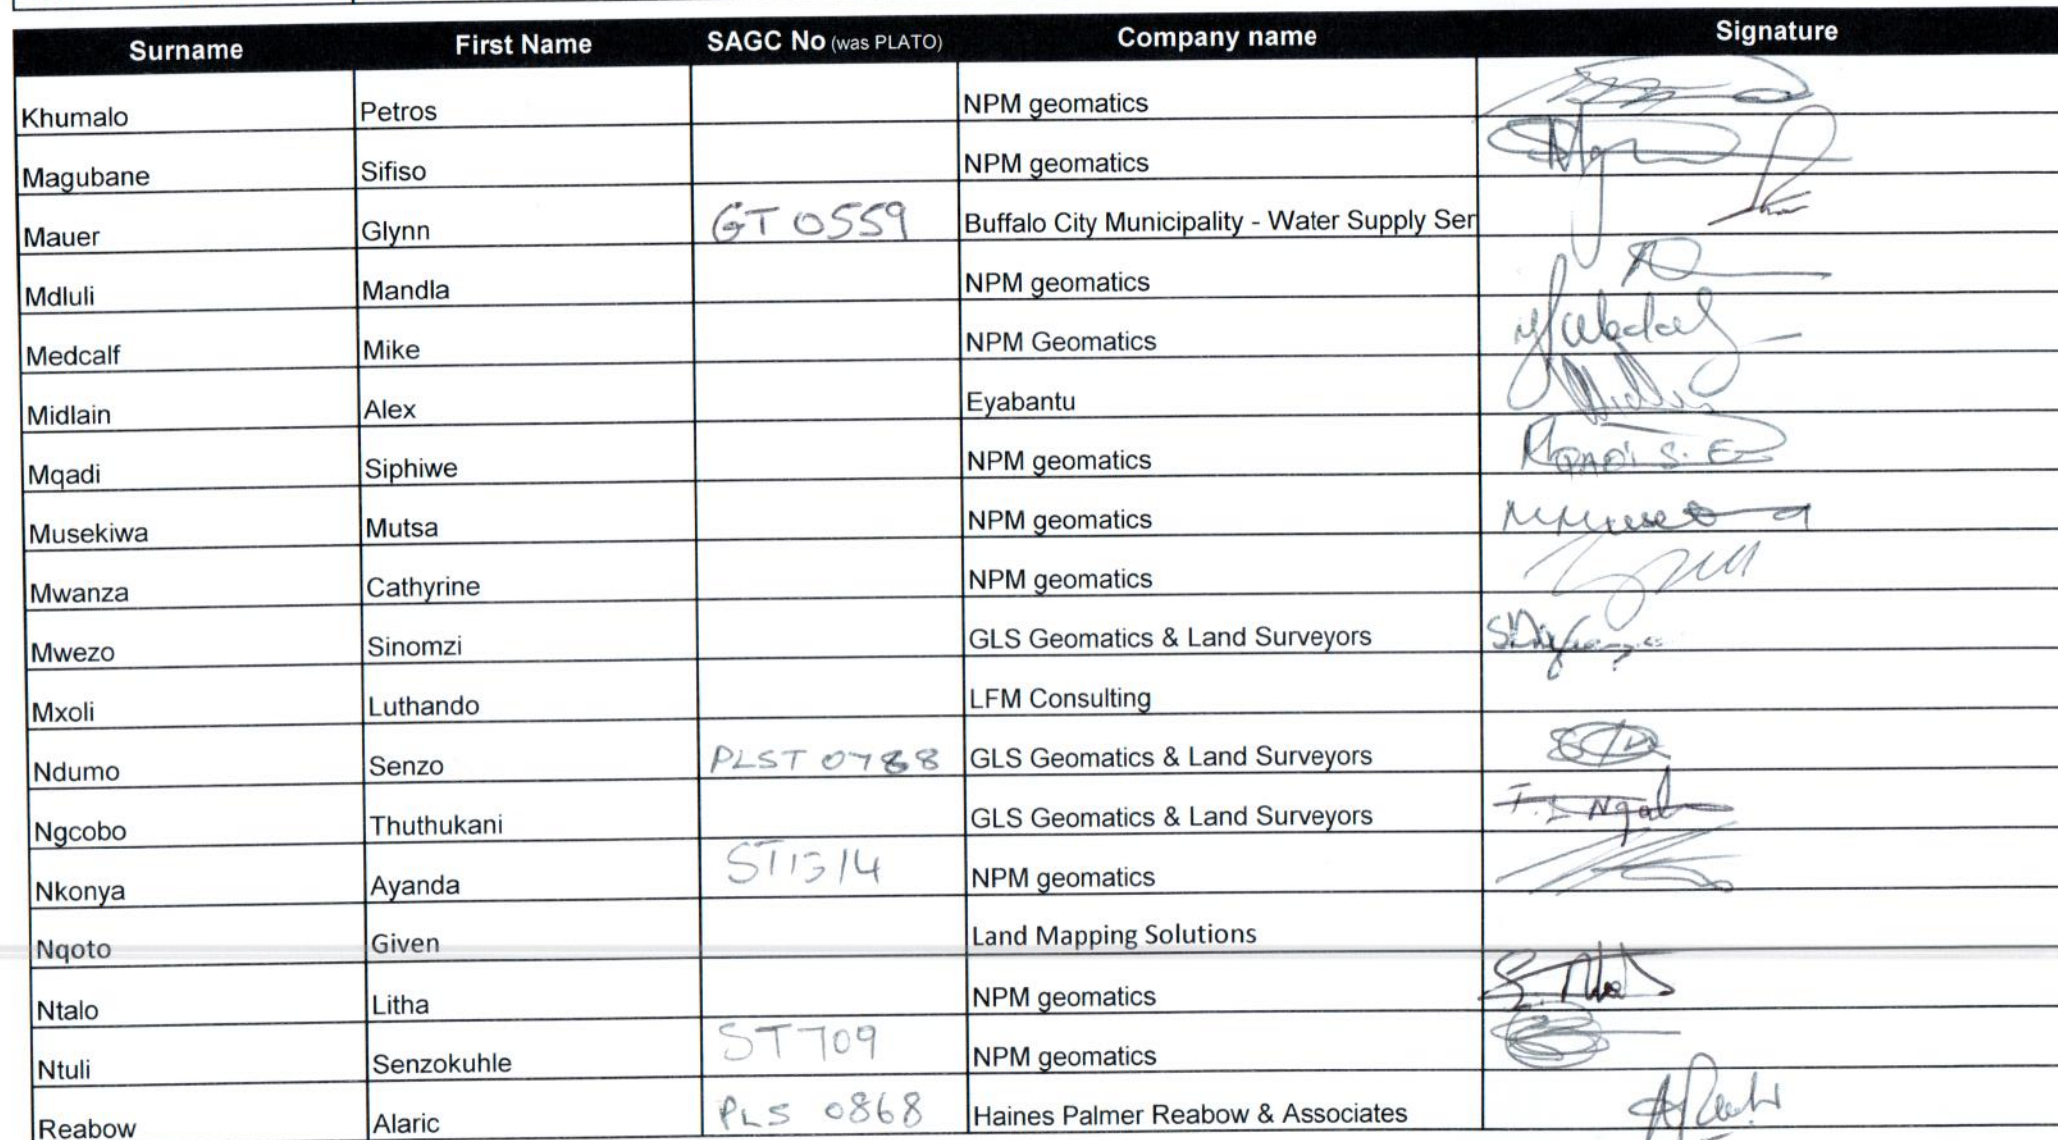 Surname First Name SAGC No (was PLATO) Company name Signature
Khumalo Petros NPM geomatics
Magubane Sifiso NPM geomatics
Mauer Glynn GT 0559 Buffalo City Municipality - Water Supply Ser
Mdluli Mandla NPM geomatics
Medcalf Mike NPM Geomatics
Midlain Alex Eyabantu
Mqadi Siphiwe NPM geomatics
Musekiwa Mutsa NPM geomatics
Mwanza Cathyrine NPM geomatics
Mwezo Sinomzi GLS Geomatics & Land Surveyors
Mxoli Luthando LFM Consulting
Ndumo Senzo PLST 0788 GLS Geomatics & Land Surveyors
Ngcobo Thuthukani GLS Geomatics & Land Surveyors
Nkonya Ayanda ST1314 NPM geomatics
Nqoto Given Land Mapping Solutions
Ntalo Litha NPM geomatics
Ntuli Senzokuhle ST709 NPM geomatics
Reabow Alaric PLS 0868 Haines Palmer Reabow & Associates